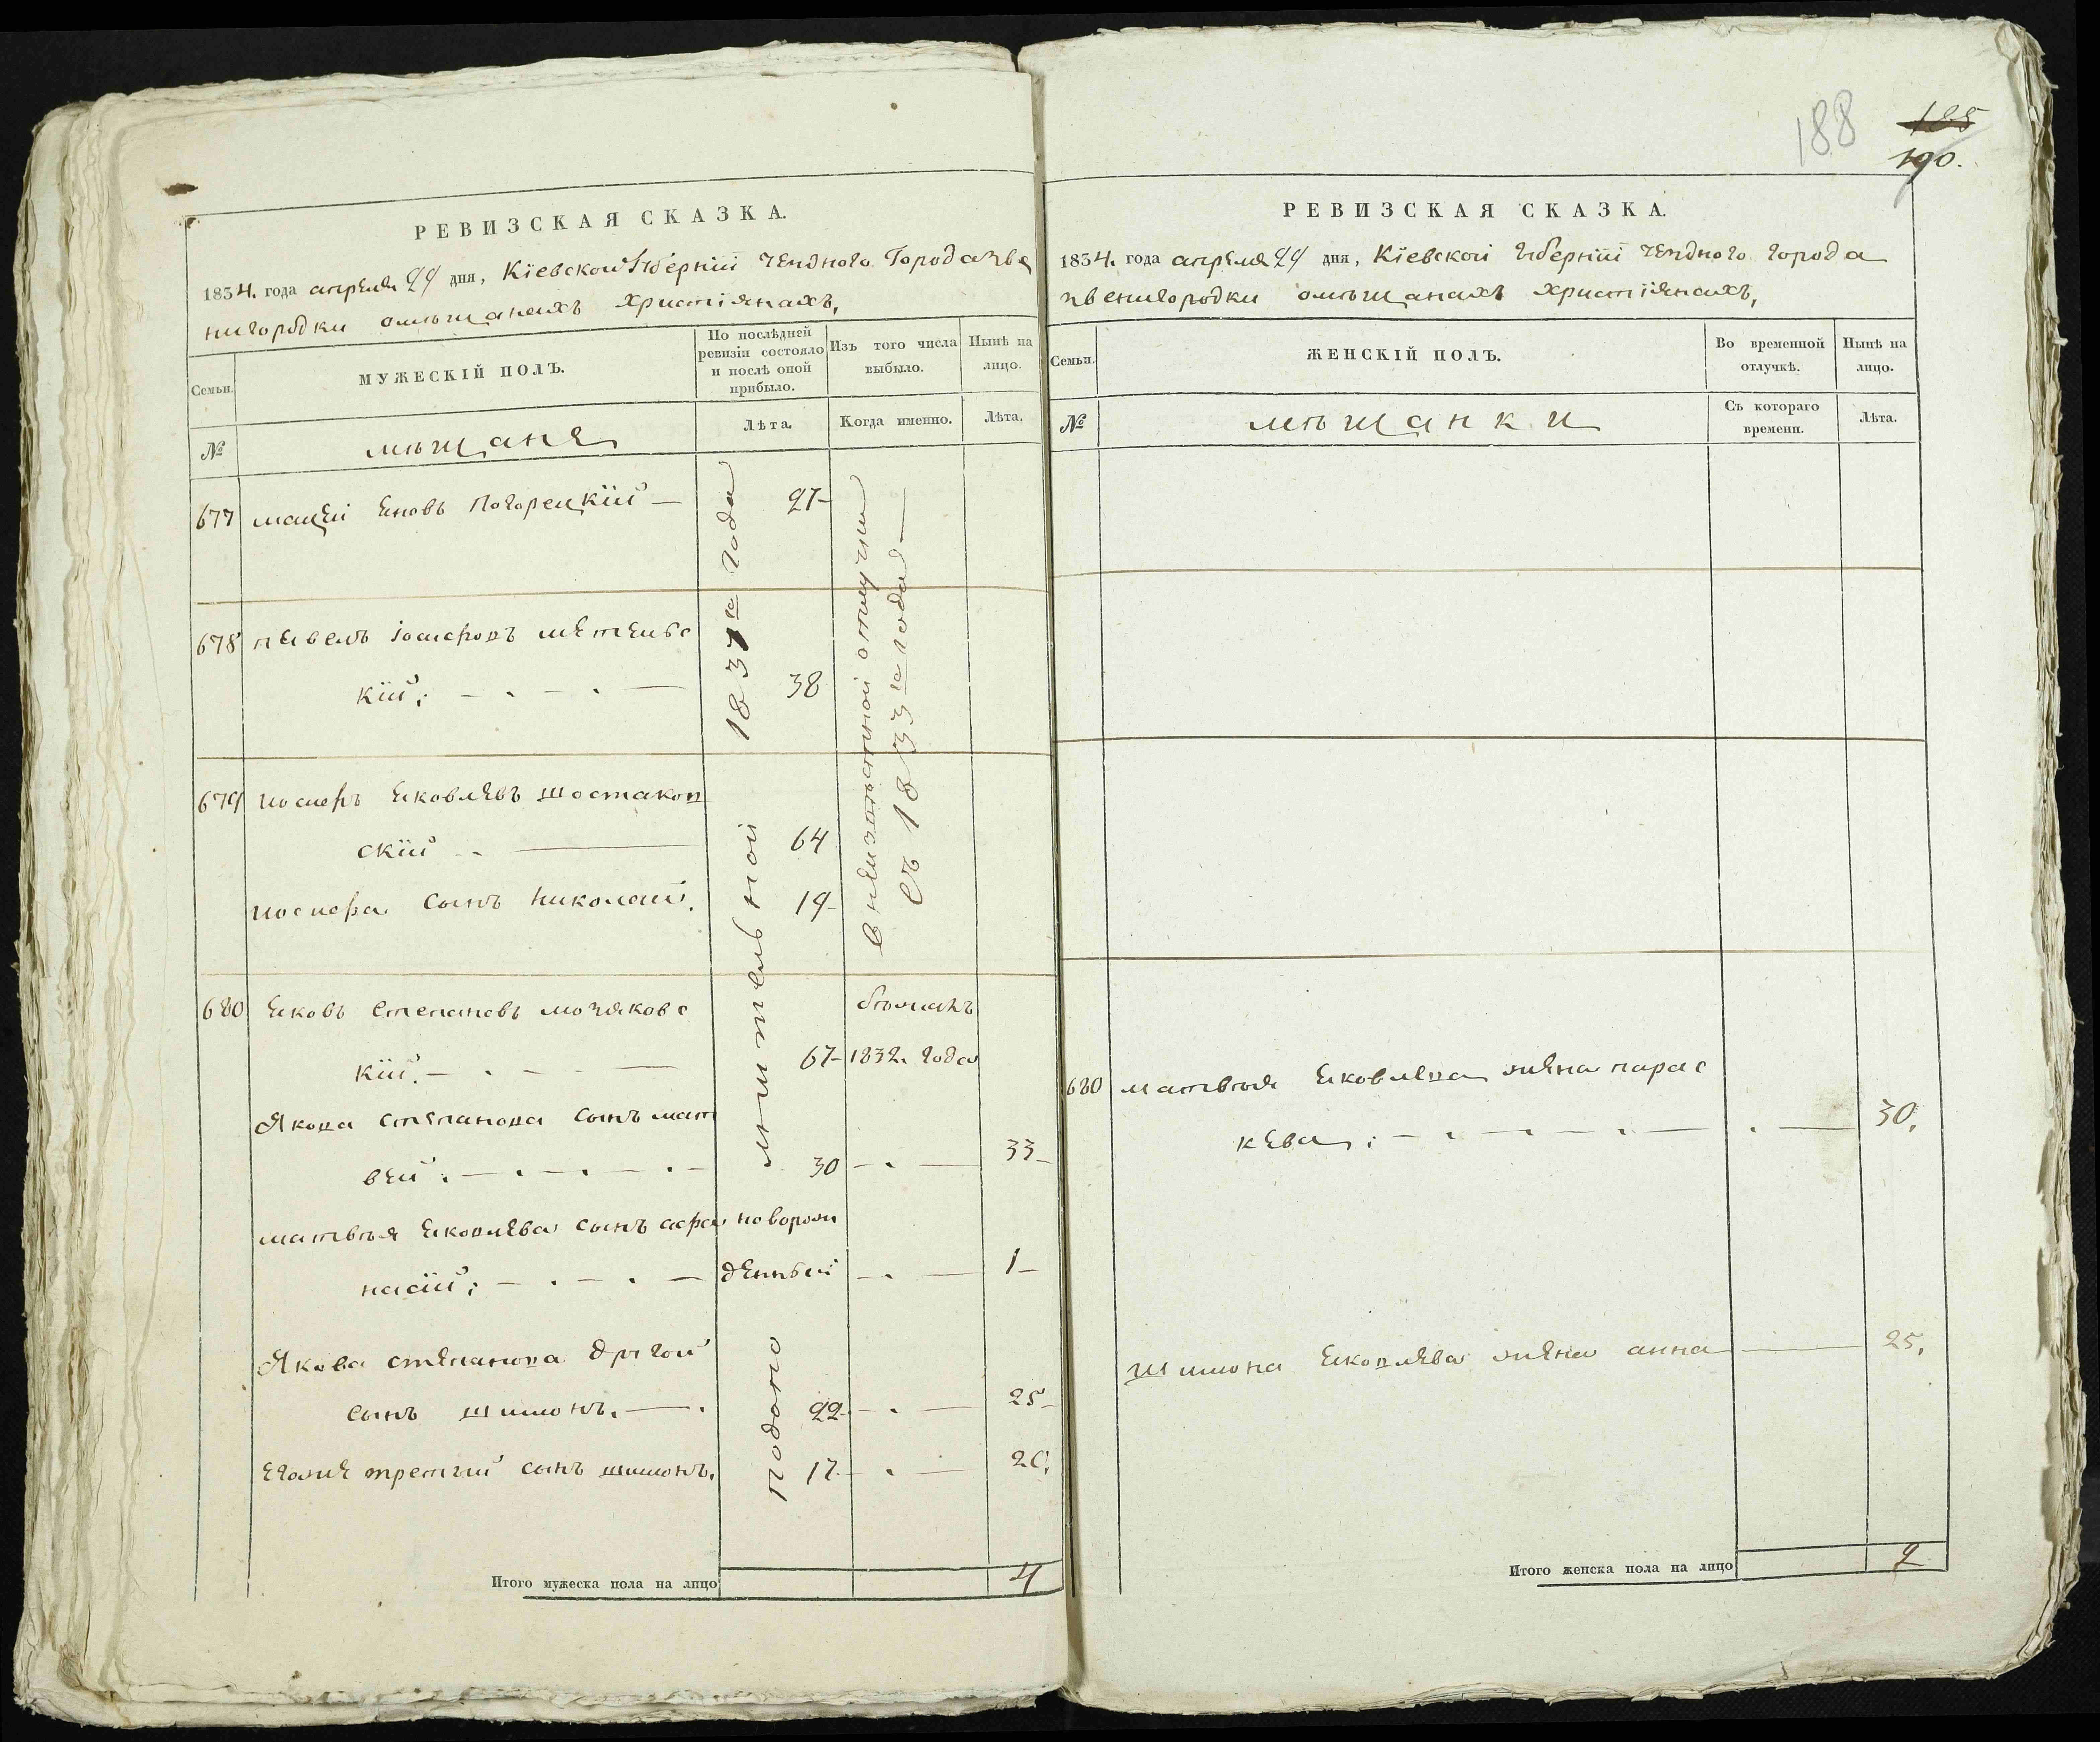 188
185
190.
РЕВИЗСКАЯ СКАЗКА.
1834. года апреля 24 дня, Кіевской Губерніи уездного Города Зве
нигородки омѣщанахъ христіянахъ,
Семьи.
МУЖЕСКІЙ ПОЛЪ.
По послѣдней
ревизіи состояло
и послѣ оной
прибыло.
Изъ того числа
выбыло.
Нынѣ на
лицо.
№
мѣщане
Лѣта.
Когда именно.
Лѣта.
677 мацей яновъ Погорецкій — 27-
678
кій; 38
679 иосифъ яковлевъ шостаков
скій 64
иосифа сынъ николай. 19-
подано
мнительной
1831го года
съ 1833го года
680 яковъ степановъ мозяковс
кій. 67- 1832. года
Якова степанова сынъ мат
вей. 30 33-
матвѣя яковлева сынъ афа новорож
насій; денный 1-
Якова степанова другой
сынъ шимонъ. 22- 25-
егоже третий сынъ шимонъ. 17- 20.
Итого мужеска пола на лицо 4
РЕВИЗСКАЯ СКАЗКА.
1834. года апреля 24 дня, Кіевской Губерніи уездного города
звенигородки омѣщанахъ христіянахъ,
Семьи.
ЖЕНСКІЙ ПОЛЪ.
Во временной
отлучкѣ.
Нынѣ на
лицо.
№
мѣщанки
Съ котораго
времени.
Лѣта.
680 матвѣя яковлева жена парас
кева; 30.
шимона яковлева жена анна 25.
Итого женска пола на лицо 2